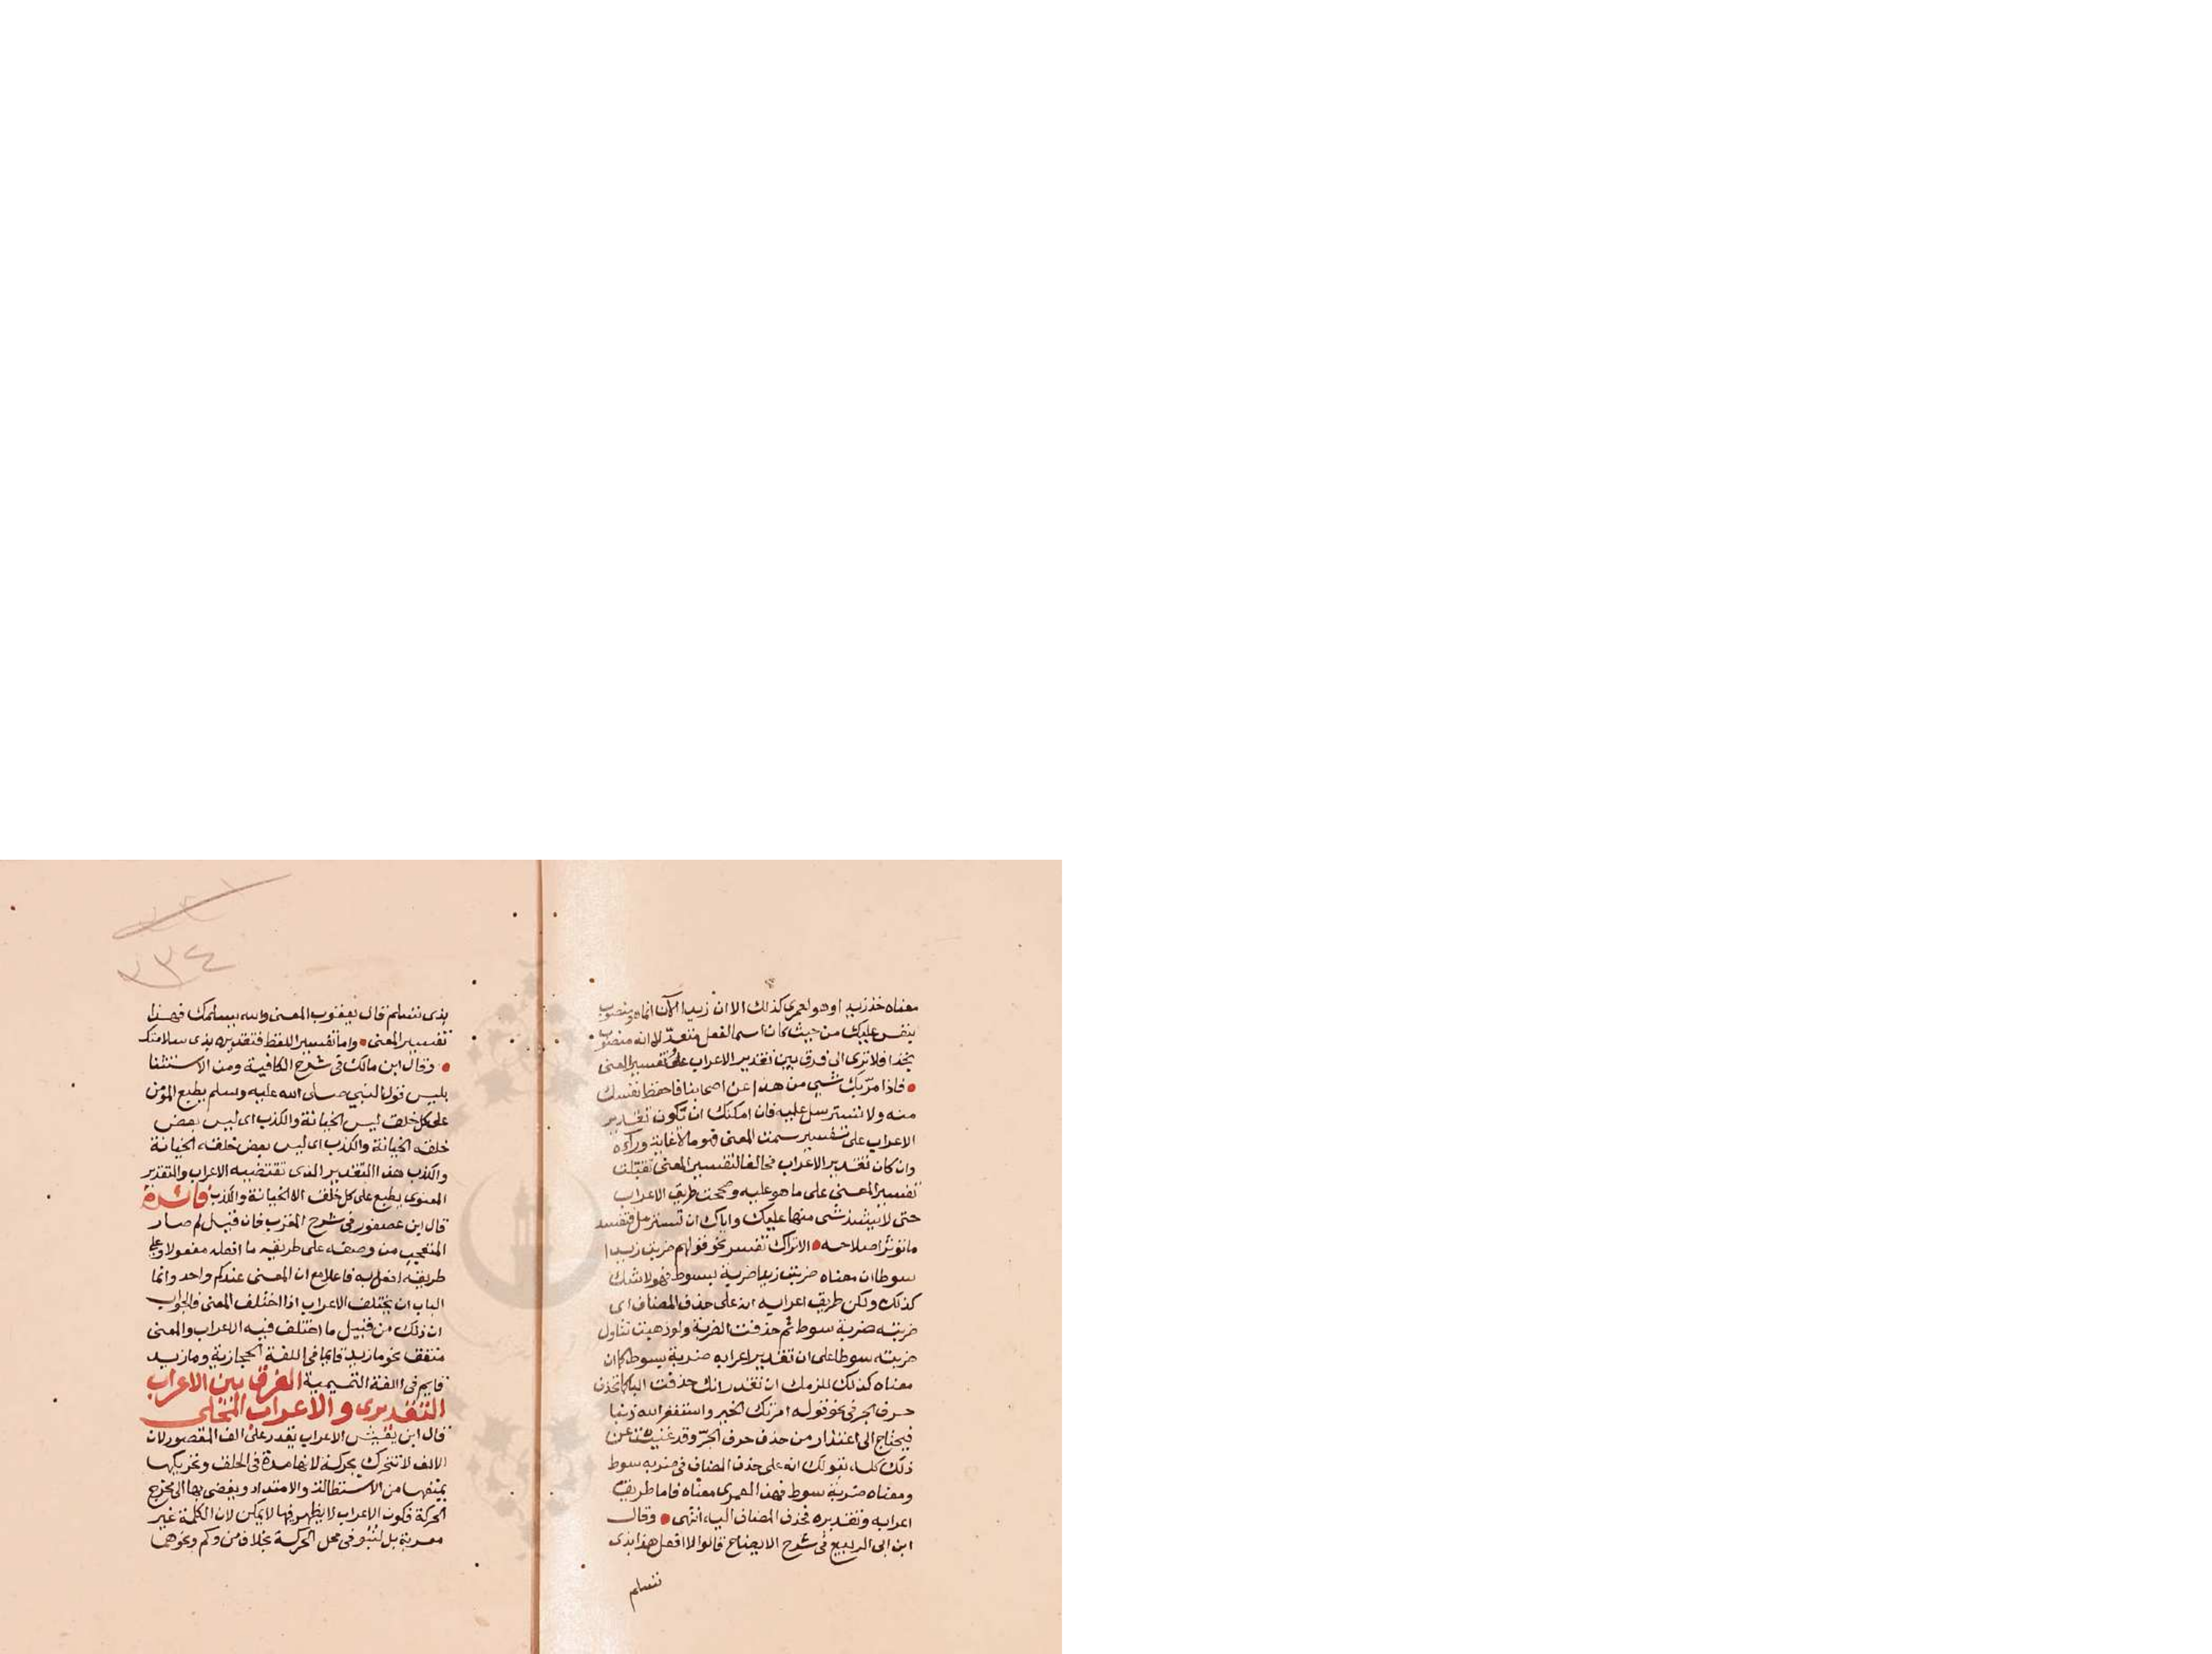 معناه خذ زيدا وهو لعمري كذلك الا ان زيدا الآن انما هو منصوب
بنفس عليك من حيث كان اسما لفعل متعد لا انه منصوب
بخذ افلا ترى الى فرق بين تقدير الاعراب وتفسير المعنى
فاذا مر بك شيء من هذا عن اصحابنا فاحفظ نفسك
منه ولا تسترسل عليه فان امكنك ان تكون تقدير
الاعراب على تفسير سمت المعنى فهو ما لا غاية وراءه
وان كان تقدير الاعراب مخالفا لتفسير المعنى تقبلت
تفسير المعنى على ما هو عليه وصححت طريق الاعراب
حتى لا يشذ شي منها عليك واياك ان تسترسل فتفسد
ما تؤثر اصلاحه الا تراك تفسر نحو قولهم ضربت زيدا
سوطا ان معناه ضربت زيدا ضربة بسوط فهو لا شك
كذلك ولكن طريق اعرابه انه على حذف المضاف اى
ضربته ضربة سوط ثم حذفت الضربة ولو ذهبت تتاول
ضربته سوطا على ان تقدير اعرابه ضربة بسوط كما ان
معناه كذلك للزمك ان تقدر انك حذفت البا كما تحذف
حرف الجر في نحو قوله امرتك الخير واستغفر الله ذنبا
فيحتاج الى اعتذار من حذف حرف الجر وقد غنيت عن
ذلك كله بقولك انه على حذف المضاف في ضربة سوط
ومعناه ضربة سوط فهذا لعمري معناه فاما طريق
اعرابه وتقديره فحذف المضاف اليه انتهى وقال
ابن ابى الربيع في شرح الايضاح قالوا لا افعل هذا بذى
تسلم
٣٣٤
بذى تسلم قال يعقوب المعنى والله يسلمك فهذا
تفسير المعنى واما تفسير اللفظ فتقديره بذى سلامتك
وقال ابن مالك في شرح الكافية ومن الاستثنا
بليس قول النبي صلى الله عليه وسلم يطبع المؤمن
على كل خلق ليس الخيانة والكذب اى ليس بعض
خلقه الخيانة والكذب اى ليس بعض خلقه الخيانة
والكذب هذا التقدير الذى تقتضيه الاعراب والتقدير
المعنوى يطبع على كل خلق الا الخيانة والكذب فائدة
قال ابن عصفور في شرح المقرب فان قيل لم صار
المتعجب من وصفه على طريقه ما افعله مفعولا وعلى
طريقه افعل به فاعلا مع ان المعنى عندكم واحد وانما
الباب ان يختلف الاعراب اذا اختلف المعنى فالجواب
ان ذلك من قبيل ما اختلف فيه الاعراب والمعنى
متفق نحو ما زيد قايما في اللغة الحجازية وما زيد
قايم في اللغة التميمية الفرق بين الاعراب
التقديرى والاعراب المحلى
قال ابن يعيش الاعراب يقدر على الف المقصور لان
الالف لا تتحرك بحركة لانها مدة في الحلق وتحريكها
يمنعها من الاستطالة والامتداد ويفضى بها الى مخرج
الحركة فكون الاعراب لا يظهر فيها لا يمكن لان الكلمة غير
معربة بل لنبو في محل الحركة بخلاف من وكم ونحوهما